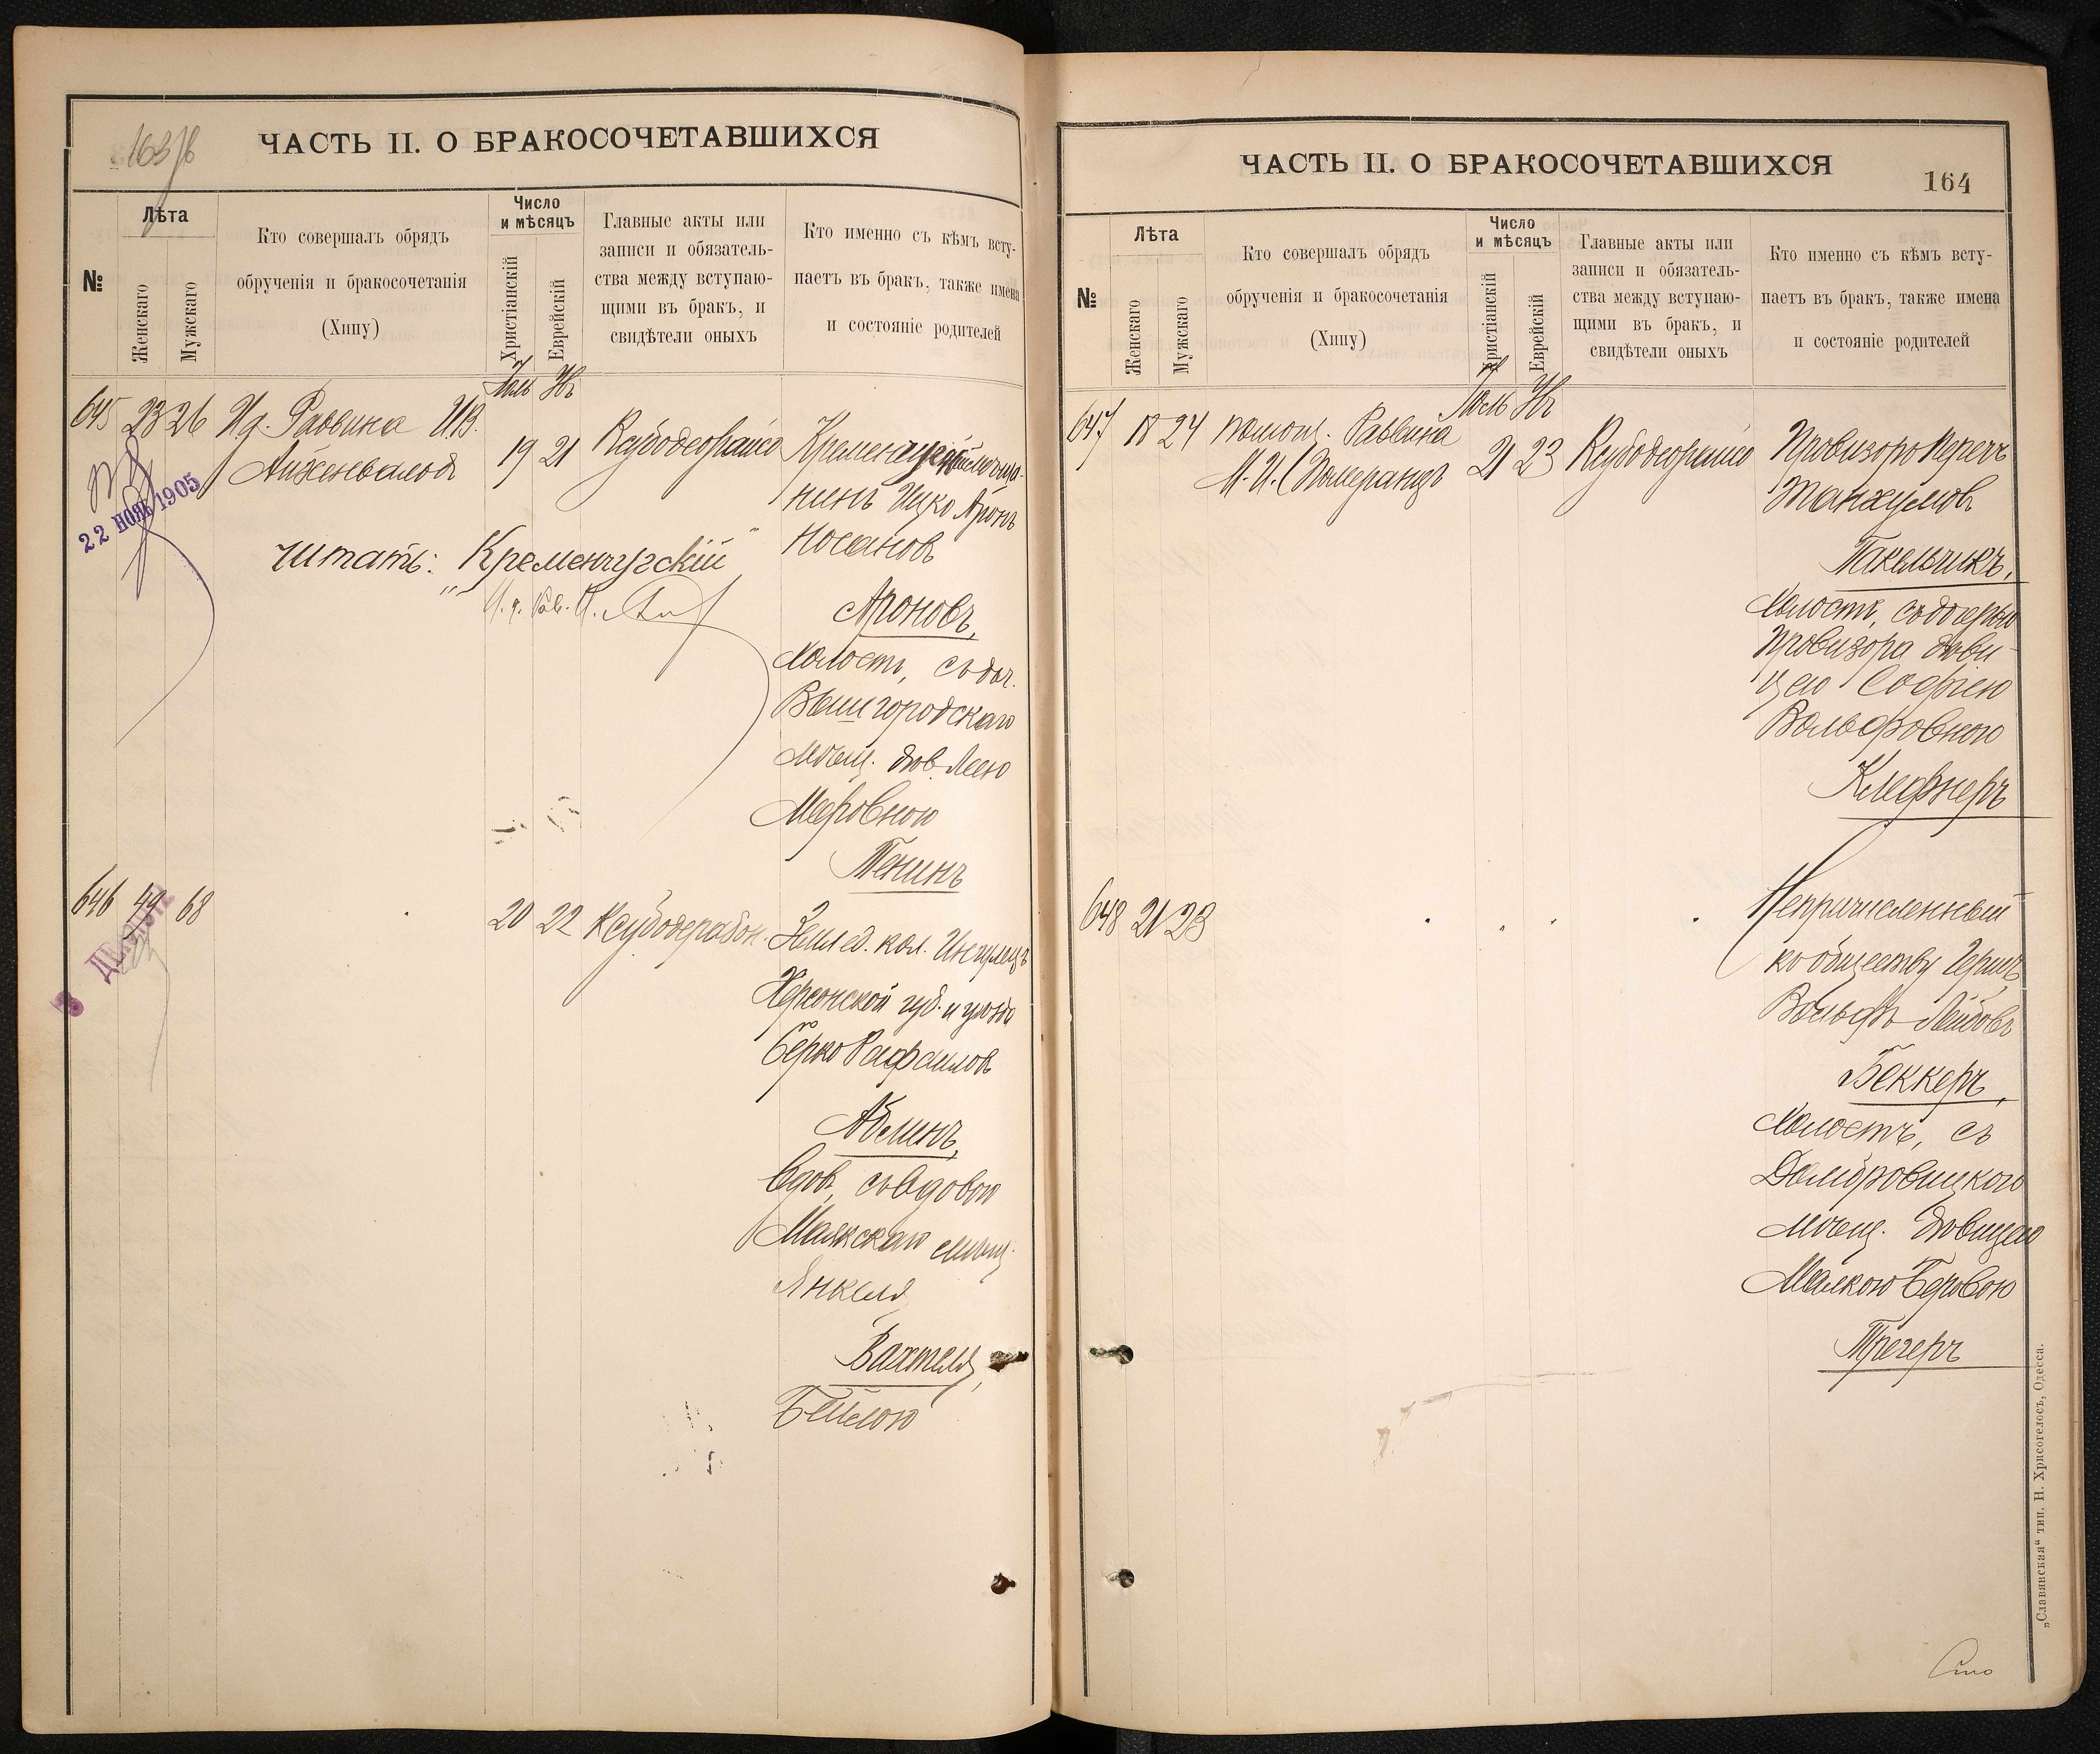 163 /б
ЧАСТЬ II. О БРАКОСОЧЕТАВШИХСЯ
№
Лѣта
Женскаго
Мужскаго
Кто совершалъ обрядъ
обрученія и бракосочетанія
(Хипу)
Число
и мѣсяцъ
Христіанскій
Еврейскій
Главные акты или
записи и обязатель-
ства между вступаю-
щими въ бракъ, и
свидѣтели оныхъ
Кто именно съ кѣмъ всту-
паетъ въ бракъ, также имена
и состояніе родителей
645 23 26 И.д. Раввина И.В.
Айзенвалов
19 21
Кременчугскій мѣща-
нинъ Ицко Аронъ
Носановъ
22 НОЯ 1905
Читать: "Кременчугскій"
Ароновъ,
холостъ, съ доч.
Вышгородскаго
мѣщ. дѣв. Леею
Меровною
Тенинъ
646 49 68
20 22
Землед. кол. Ингулецъ
Херсонской губ. и уѣзда
Берко Рафаилов
Аблинъ,
вдов, съ вдовою
Маякскаго мѣщ.
Янкеля
Вахтеля,
Бейлою
ЧАСТЬ II. О БРАКОСОЧЕТАВШИХСЯ
164
№
Лѣта
Женскаго
Мужскаго
Кто совершалъ обрядъ
обрученія и бракосочетанія
(Хипу)
Число
и мѣсяцъ
Христіанскій
Еврейскій
Главные акты или
записи и обязатель-
ства между вступаю-
щими въ бракъ, и
свидѣтели оныхъ
Кто именно съ кѣмъ всту-
паетъ въ бракъ, также имена
и состояніе родителей
647 18 24 Помощ. Раввина
М.И. Померанцъ
21 23
Провизоръ Перецъ
Танхумовъ
Такельчикъ,
холостъ, съ дочерью
Провизора дѣви-
цею Софіею
Вольфовною
Клефнеръ
648 21 23
Непричисленный
къ обществу Герш
Вольфъ Лейбовъ
Беккеръ,
холостъ, съ
Домбровицкого
мѣщ. дѣвицею
Малкою Беровою
Трегеръ
„Славянская“ тип. Н. Хрисогелосъ, Одесса.